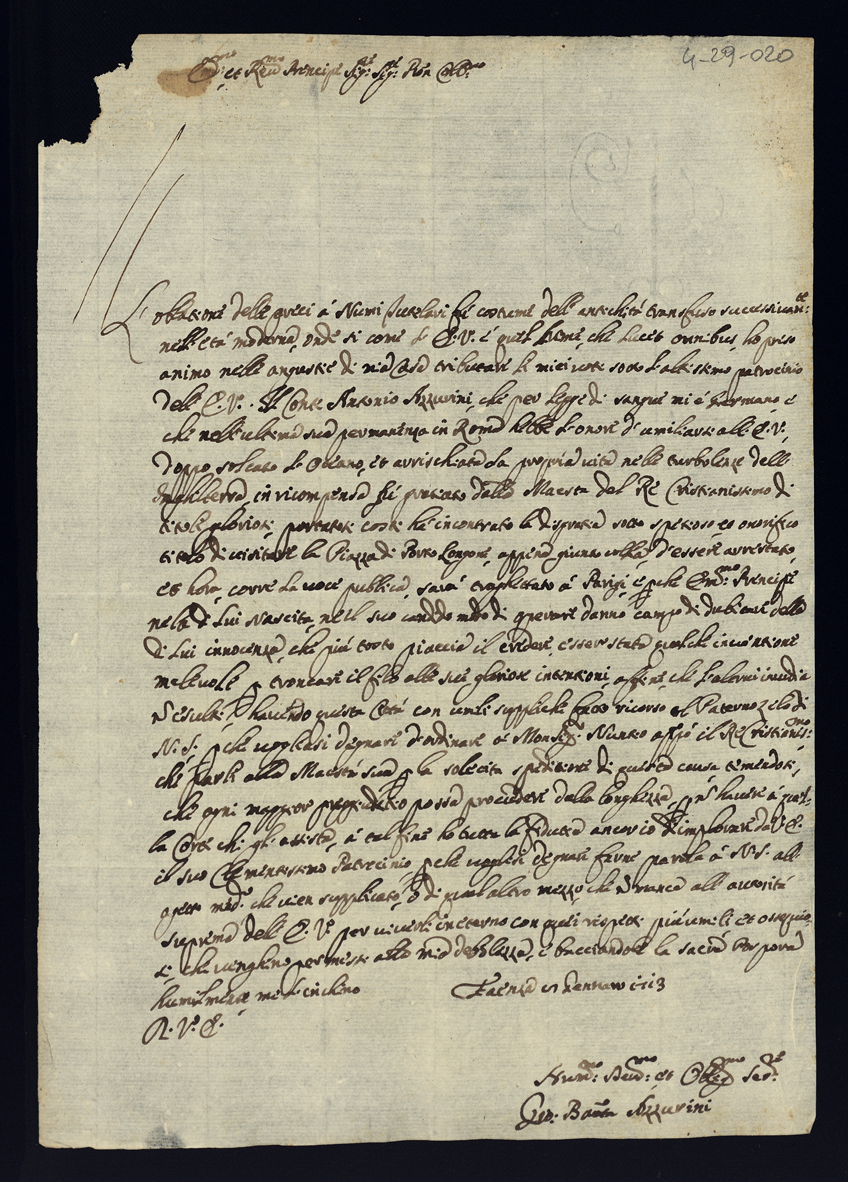 4-29-020
Em.mo et Rev.mo Prencipe Sig.r Sig.r P̃ron Coll.mo
L'oblatione delle preci á Numi tutelari fú costume dell'antichitá transfuso successivam.te
nell'etá moderna, onde si come l'E. V. é quel Lume, che lucet omnibus, ho preso
animo nelle angustie di mia Casa tributare le miei vote sotto l'altissimo patrocinio
dell'E. V. Il Conte Antonio Azzurini, che per legge di sangue mi é Germano, é
che nell'ultima sua permanenza in Roma hebbe l'onore d'umiliarsi all'E. V.,
doppo solcato l'Oceano, et avrischiata la propria vita nelle turbolenze dell'
Inghilterra, in ricompensa fú fregiato dalla Maestá del Ré Cristianissimo di
titoli gloriosi, portatosi costi há incontrato la disgratia sotto spetioso, et onorifico
titolo di visitare la Piazza di Porto Longone, appena giunto colla, d'essere arrestato,
et hora, corre la voce publica, sará traghettato á Parigi, e perche Em.mo Prencipe
ne la di Lui Nascita, ne il suo candido modo di operare danno campo di dubitare della
di Lui innocenza, che piú tosto piaccia il credere, essere stata qualche inventione
malevole per troncare il filo alle sue gloriose intentioni, affine che l'alterui invidia
ñ esulti; havendo questa Cittá con umili suppliche fatto ricorso al Paterno zelo di
N. S. perche vogliasi degnare d'ordinare á Monsig.r Nuntio appó il Ré Cristianis.mo
che parli alla Maestá Sua per la solecita speditione di questa causa temendosi,
che ogni maggior pregiuditio possa procedere dalla longhezza, per ñ havere á quel-
la Corte chi gli assista, á tal fine ho tutta la fiducia ancor io d'implorare da V. E.
il suo Clementissimo Patrocinio, perche voglisi degnare farne parola á N. S. all'
effetto med.o che vien supplicato, ó di qualc'altro mezzo che ñ manca all'autoritá
suprema dell'E. V. per viverli in eterno con quei rispetti piú umili et ossequio-
si, che venghino permessi alla mia debolezza, e bacciandole la sacra Porpora
humilmente me l'inchino Faenza 17 Gennaro 1713
D. V. E.
Hum.mo Dev.mo et Obblig.mo Ser.re
Gio: Batta Azzurini